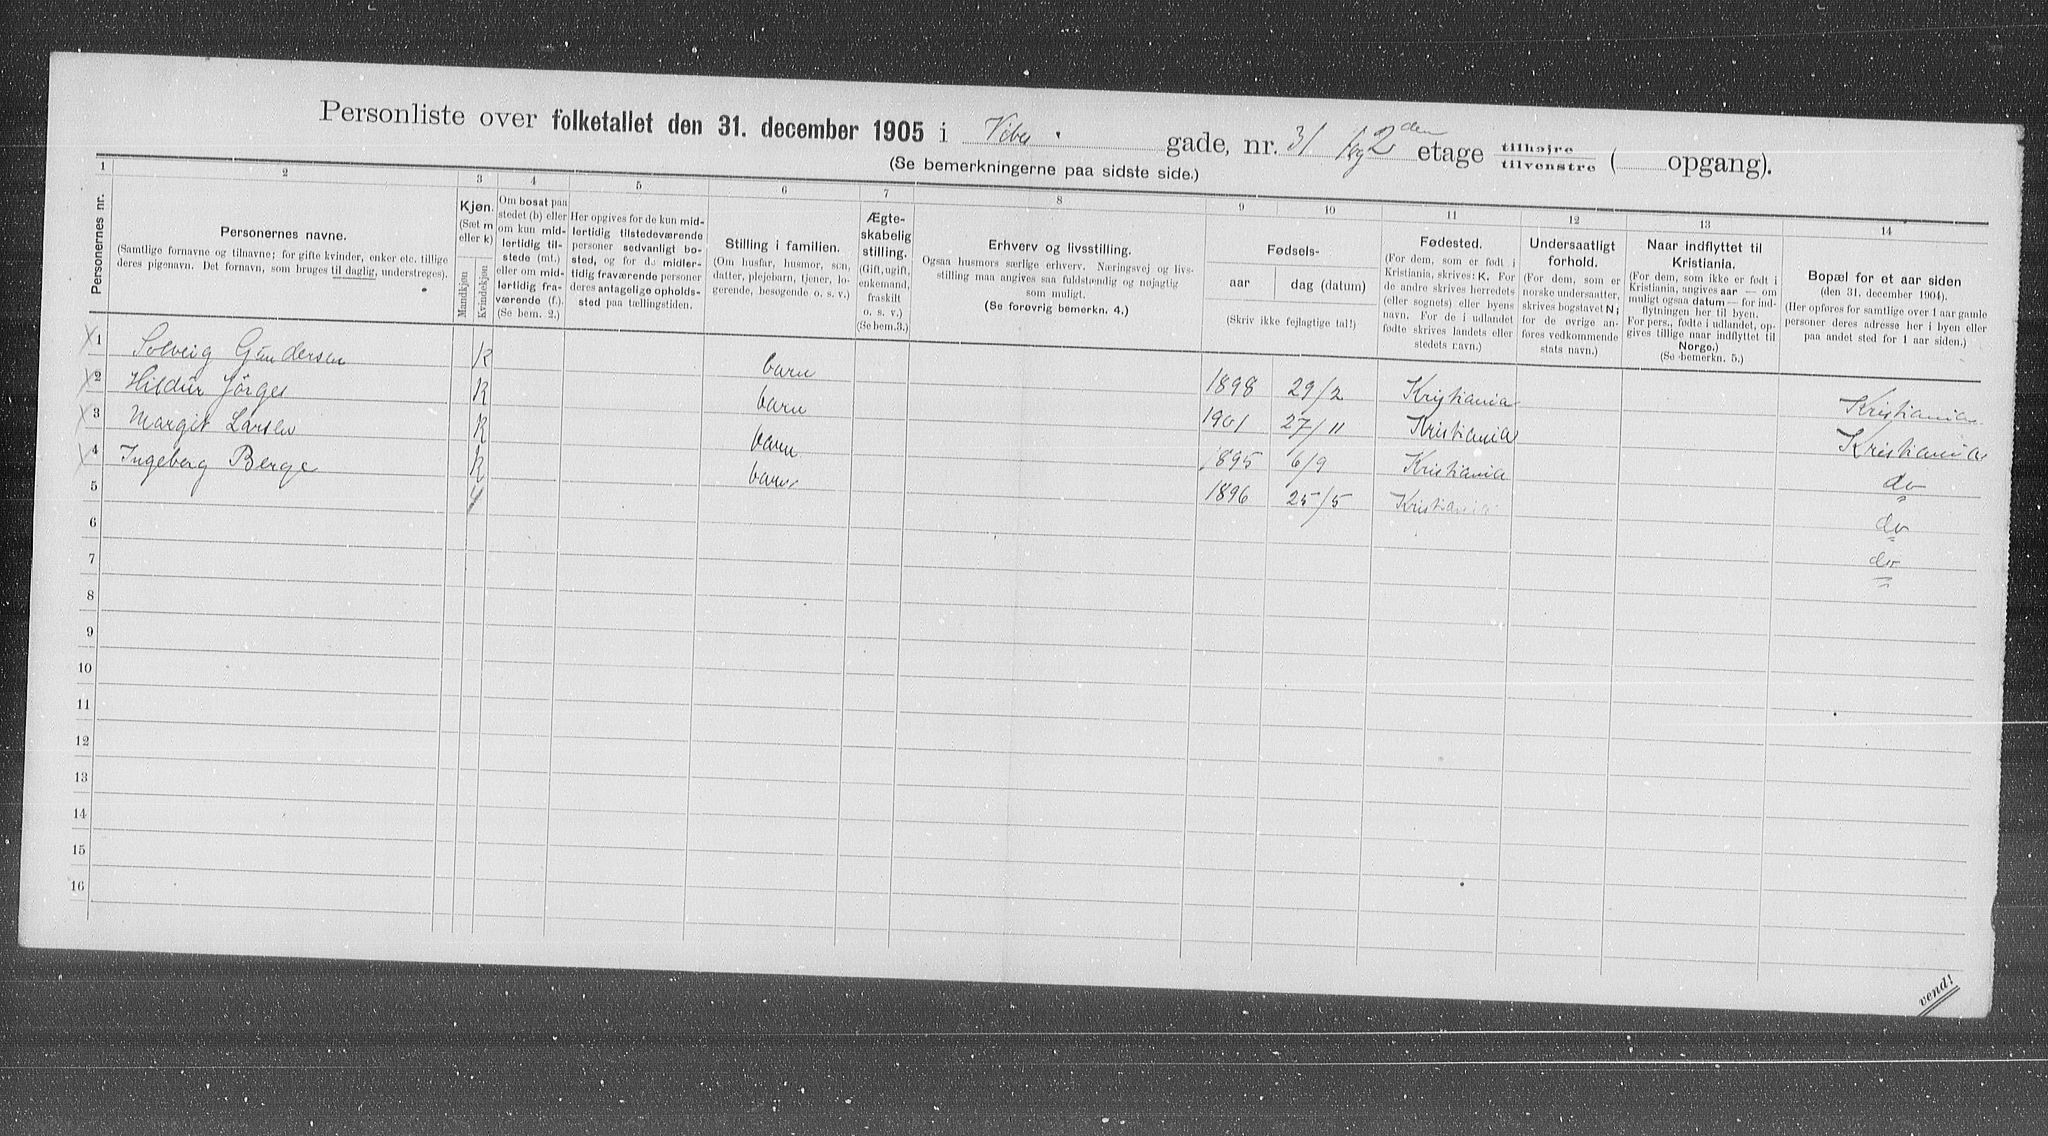 Personliste over folketallet den 31. december 1905 i Vibes gade, nr. 31 1 og 2den etage tilhøjre tilvenstre ( opgang).
(Se bemerkningerne paa sidste side.)
1 2 3 4 5 6 7 8 9 10 11 12 13 14
Personernes nr.
Personernes navne.
(Samtlige fornavne og tilnavne; for gifte kvinder, enker etc. tillige
deres pigenavn. Det fornavn, som bruges til daglig, understreges).
Kjøn.
(Sæt m
eller k)
Mandkjøn
Kvindekjøn
Om bosat paa
stedet (b) eller
om kun mid-
lertidig til-
stede (mt.)
eller om mid-
lertidig fra-
værende (f.).
(Se bem. 2.)
Her opgives for de kun mid-
lertidig tilstedeværende
personer sedvanligt bo-
sted, og for de midler-
tidig fraværende personer
deres antagelige opholds-
sted paa tællingstiden.
Stilling i familien.
(Om husfar, husmor, søn,
datter, plejebarn, tjener, lo-
gerende, besøgende o. s. v.)
Ægte-
skabelig
stilling.
(Gift, ugift,
enkemand,
fraskilt
o. s. v.)
(Se bem. 3.)
Erhverv og livsstilling.
Ogsaa husmors særlige erhverv. Næringsvej og livs-
stilling maa angives saa fuldstændig og nøjagtig
som muligt.
(Se forøvrig bemerkn. 4.)
Fødsels-
aar dag (datum)
(Skriv ikke fejlagtige tal!)
Fødested.
(For dem, som er født i
Kristiania, skrives: K. For
de andre skrives herredets
(eller sognets) eller byens
navn. For de i udlandet
fødte skrives landets eller
stedets navn.)
Undersaatligt
forhold.
(For dem, som er
norske undersaatter,
skrives bogstavet N;
for de øvrige an-
føres vedkommende
stats navn.)
Naar indflyttet til
Kristiania.
(For dem, som ikke er født i
Kristiania, angives aar — om
muligt ogsaa datum — for ind-
flytningen her til byen.
For pers., fødte i udlandet, op-
gives tillige naar indflyttet til
Norge.)
(Se bemerkn. 5.)
Bopæl for et aar siden
(den 31. december 1904).
(Her opføres for samtlige over 1 aar gamle
personer deres adresse her i byen eller
paa andet sted for 1 aar siden.)
1 Solveig Gundersen K barn 1898 29/2 Kristiania Kristiania
2 Hildur Jörges K barn 1901 27/11 Kristiania Kristiania
3 Margit Larsen K barn 1895 6/9 Kristiania do
4 Ingeborg Berge K barn 1896 25/5 Kristiania do
5 4 do
6
7
8
9
10
11
12
13
14
15
16
vend!